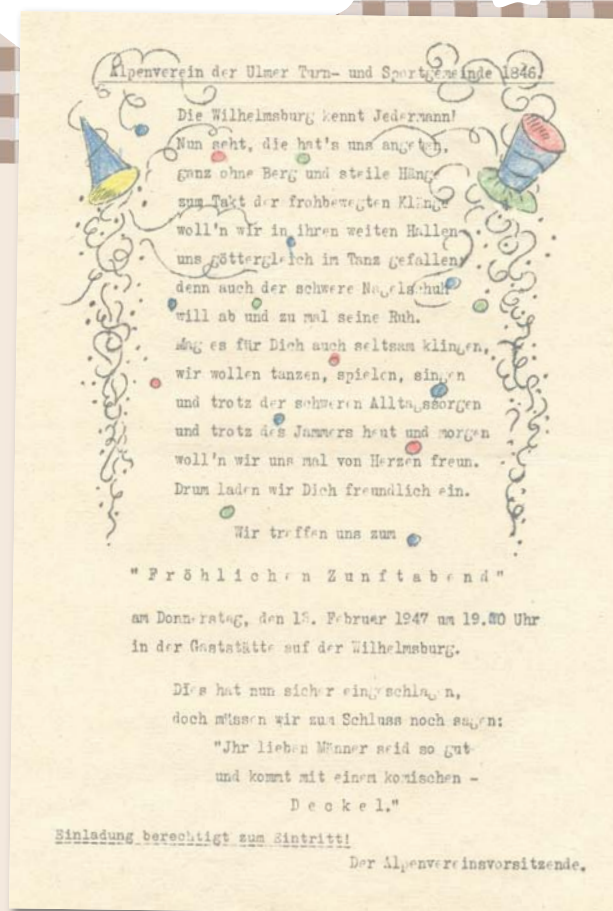 Alpenverein der Ulmer Turn- und Sportgemeinde 1846.
Die Wilhelmsburg kennt Jedermann!
Nun seht, die hat's uns angetan,
ganz ohne Berg und steile Hänge
zum Takt der frohbewegten Klänge
woll'n wir in ihren weiten Hallen
uns göttergleich im Tanz gefallen,
denn auch der schwere Nagelschuh
will ab und zu mal seine Ruh.
Mag es für Dich auch seltsam klingen,
wir wollen tanzen, spielen, singen
und trotz der schweren Alltagssorgen
und trotz des Jammers heut und morgen
woll'n wir uns mal von Herzen freun.
Drum laden wir Dich freundlich ein.
Wir treffen uns zum
"Fröhlichen Zunftabend"
am Donnerstag, den 13. Februar 1947 um 19.30 Uhr
in der Gaststätte auf der Wilhelmsburg.
Dies hat nun sicher eingeschlagen,
doch müssen wir zum Schluss noch sagen:
"Jhr lieben Männer seid so gut
und kommt mit einem komischen -
Deckel."
Einladung berechtigt zum Eintritt!
Der Alpenvereinsvorsitzende.